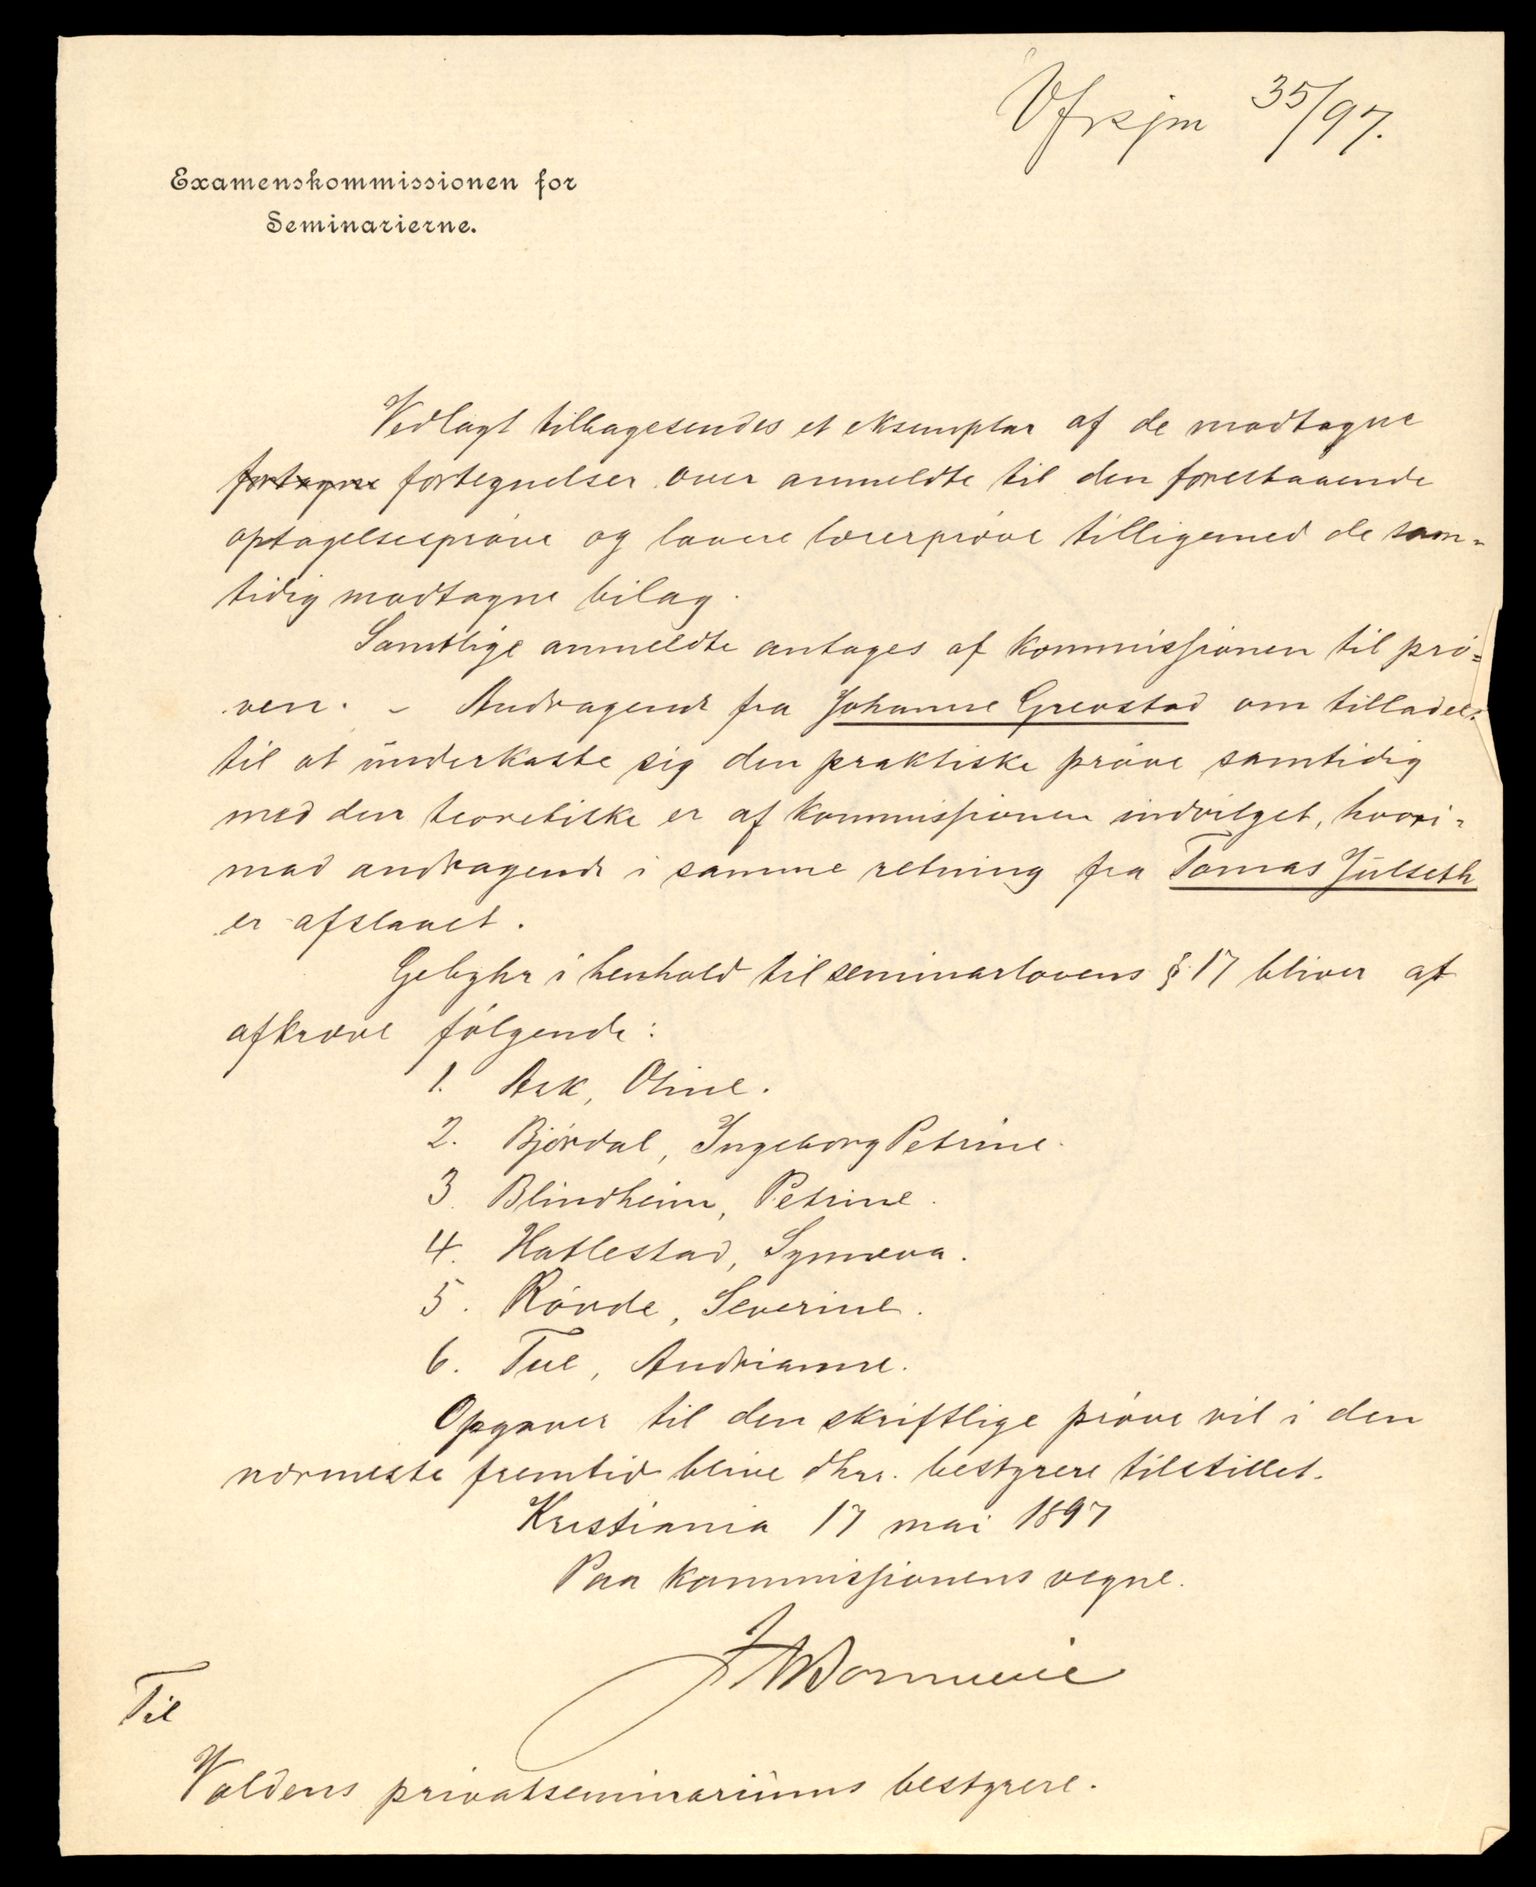 Vfrsjm 35/97.
Examenskommissionen for
Seminarierne.
Vedlagt tilbagesendes et eksemplar af de modtagne
fortagne fortegnelser over anmeldte til den forestaaende
optagelsesprøve og lavere lærerprøve tilligemed de sam-
tidig modtagne bilag.
Samtlige anmeldte antages af kommissionen til prø-
ven. – Andragende fra Johanne Grevstad om tilladel-
til at underkaste sig den praktiske prøve samtidig
med den teoretiske er af kommissionen indvilget, hvori-
mod andragende i samme retning fra Tomas Julseth
er afslaaet.
Gebyhr i henhold til seminarlovens § 17 bliver at
afkræve følgende:
1. Ask, Oline.
2. Bjørdal, Ingeborg Petrine.
3. Blindheim, Petrine.
4. Hatlestad, Synnøva.
5. Røvde, Severine.
6. Tue, Andrianne.
Opgaver til den skriftlige prøve vil i den
nærmeste fremtid blive dhrr. bestyrere tilstillet.
Kristiania 17 mai 1897
Paa kommissionens vegne.
Til
Voldens privatseminariums bestyrere.